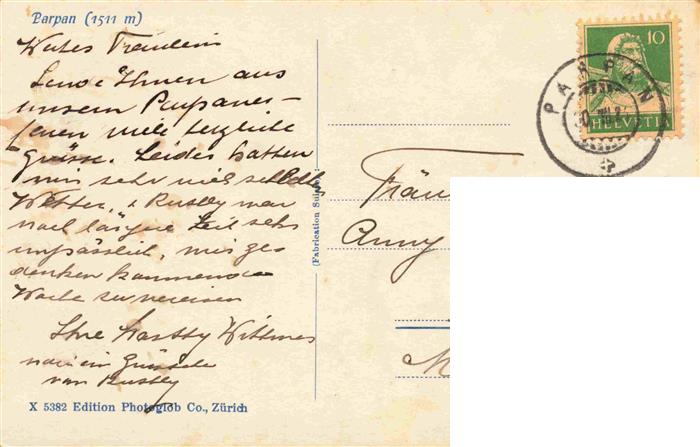 Parpan (1511 m)
Wertes Fräulein
Sende Ihnen aus
unsern Parpaner-
ferien viele herzliche
Grüsse. Leider hatten
wir sehr viel schlechtes
Wetter, & Rustly war
nach längere Zeit sehr
unpässlich, wir ge-
denken kommende
Woche zu verreisen
Ihre Wittmer
Grüssle
von Rustly
X 5382 Edition Photoglob Co., Zürich
(Fabrication Suisse)
10
HELVETIA
PARPAN
Fräu
Anny